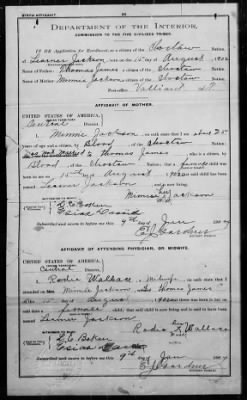 BIRTH AFFIDAVIT.
DEPARTMENT OF THE INTERIOR,
COMMISSION TO THE FIVE CIVILIZED TRIBES.
IN RE Application for Enrollment, as a citizen of the Choctaw Nation,
of Leaner Jackson, born on the 15th day of August, 1902
Name of Father: Thomas James a citizen of the Choctaw Nation.
Name of Mother: Minnie Jackson a citizen of the Choctaw Nation.
Post-office, Valliant I.T.
AFFIDAVIT OF MOTHER.
UNITED STATES OF AMERICA,
INDIAN TERRITORY,
Central District.
I, Minnie Jackson, on oath state that I am about 25
years of age and a citizen by Blood, of the Choctaw
Nation; that I was not married to Thomas James, who is a citizen, by
Blood, of the Choctaw Nation; that a female child was
born to me on 15th day of August, 1902; that said child has been
named Leaner Jackson, and is now living.
Minnie Jackson
Subscribed and sworn to before me this 9th day of Jan, 190
E J Gardner
AFFIDAVIT OF ATTENDING PHYSICIAN, OR MIDWIFE.
UNITED STATES OF AMERICA,
INDIAN TERRITORY,
Central District.
I, Rodie Wallace, a Midwife, on oath state that I
attended on Mrs. Minnie Jackson, Thomas James
on the 15 day of August, 1902; that there was born to her on said date a
female child; that said child is now living and is said to have been
named Leaner Jackson
Rodie Wallace
Subscribed and sworn to before me this 9th day of Jan, 190
E J Gardner